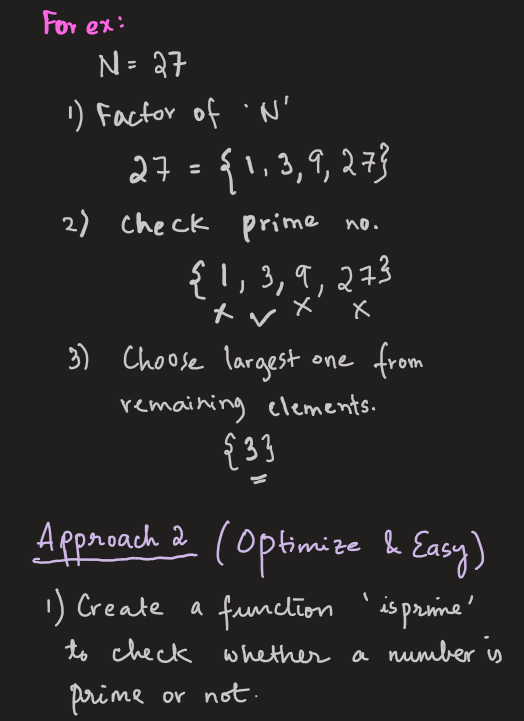 For ex:
N = 27
1) Factor of 'N'
27 = {1, 3, 9, 27}
2) Check prime no.
{1, 3, 9, 27}
× ✓ × ×
3) Choose largest one from
remaining elements.
{3}
Approach 2 (Optimize & Easy)
1) Create a function 'isprime'
to check whether a number is
prime or not.